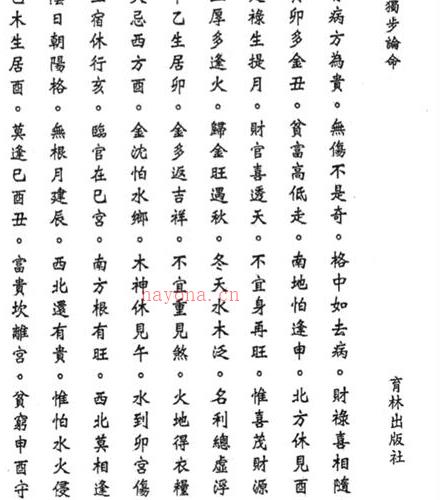 獨步論命
病方為貴。無傷不是奇。格中如去病。財祿喜相隨
卯多金丑。貧富高低走。南地怕逢申。北方休見酉
祿生提月。財官喜透天。不宜身再旺。惟喜茂財源
厚多逢火。歸金旺遇秋。冬天水木泛。名利總虛浮
乙生居卯。金多返吉祥。不宜重見煞。火地得衣糧
忌西方酉。金沈怕水鄉。木神休見午。水到卯宮傷
宿休行亥。臨官在巳宮。南方根有旺。西北莫相逢
日朝陽格。無根月建辰。西北還有貴。惟怕水火侵
木生居酉。莫逢巳酉丑。富貴坎離宮。貧窮申酉守
育林出版社
hayona.cn